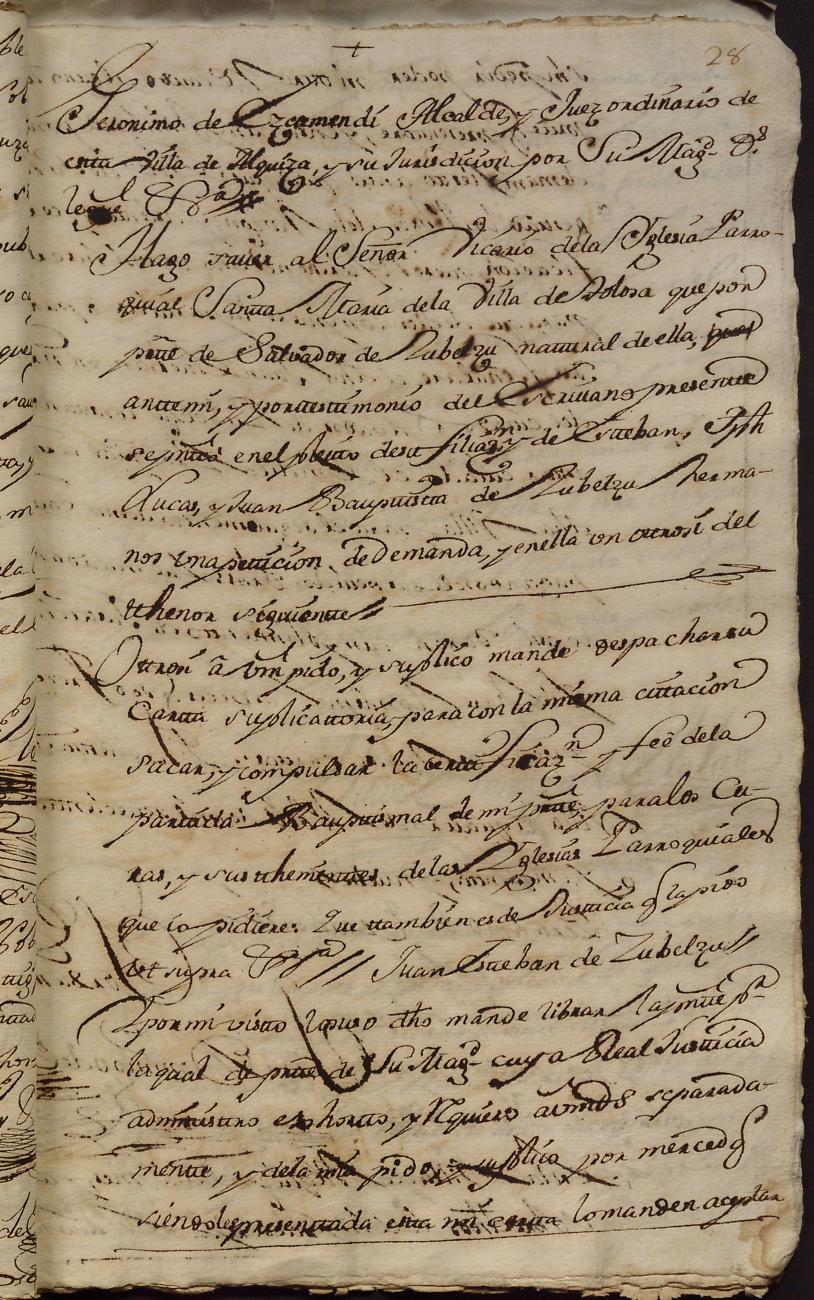 +
28
Geronimo de Ezcamendi Alcalde, y Juez ordinario de
esta villa de Alquiza, y su Jurisdicion por Su Magd. Ds.
le gue &a
Hago saver al Señor Vicario dela Yglesia Parro-
quial Santta Maria dela Villa de Tolosa que por
ptte de Salvador de Zubelzu nattural de ella,
antte mi, y por testtimonio del Escrivano presentte
en el pleitto de su filiazn y de Estteban, Jph
Lucas, y Juan Bauptistta de Zubelzu Herma-
nos una petticion de Demanda, y en ella un ottrosi del
tthenor siguientte
Ottrosi â Vm pido, y suplico mande despachar su
Cartta suplicattoria, para con la misma cittacion
sacar, y compulsar la certtificazn y feê dela
parttida Bauptismal de mi ptte, para los Cu-
ras, y sus tthenienttes delas Yglesias Parroquiales
que lo pidiere: Que ttambien es de Justticia q la pido
Ut supra &a Juan Estteban de Zubelzu
Y por mi vistto lo puso dho mande librar la
la qual de ptte de Su Magd. cuya Real Justticia
administtro exhortto, y Rquiero a Vmds separada-
mentte, y dela mia pido, y suplico por merced q
siendoles presenttada estta mi cartta lo manden aceptar